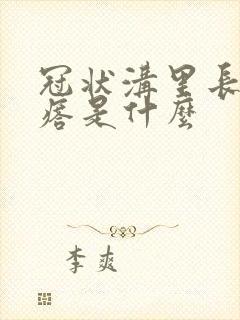 冠状溝里長
痞是什麼
李爽